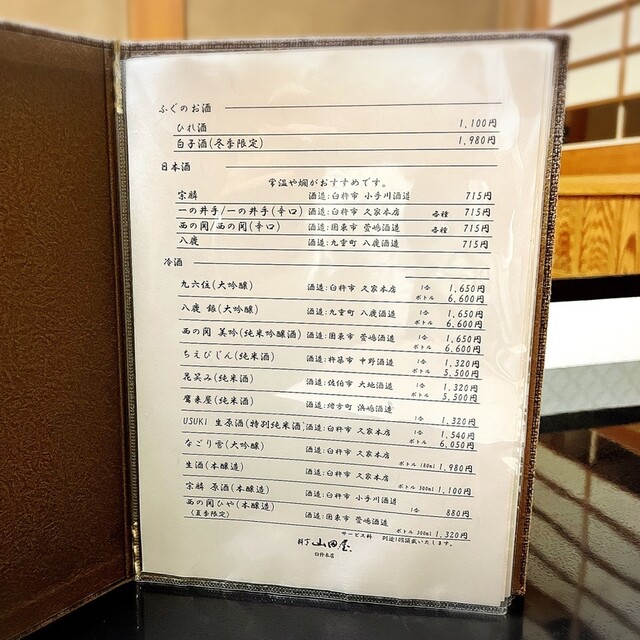 ふぐのお酒
ひれ酒 1,100円
白子酒(冬季限定) 1,980円
日本酒
常温や燗がおすすめです。
宗麟 酒造:臼杵市 小手川酒造 715円
一の井手/一の井手(辛口) 酒造:臼杵市 久家本店 各種 715円
西の関/西の関(辛口) 酒造:国東市 萱嶋酒造 各種 715円
八鹿 酒造:九重町 八鹿酒造 715円
冷酒
九六位(大吟醸) 酒造:臼杵市 久家本店 1合 1,650円
ボトル 6,600円
八鹿 銀(大吟醸) 酒造:九重町 八鹿酒造 1合 1,650円
ボトル 6,600円
西の関 美吟(純米吟醸酒) 酒造:国東市 萱嶋酒造 1合 1,650円
ボトル 6,600円
ちえびじん(純米酒) 酒造:杵築市 中野酒造 1合 1,320円
ボトル 5,500円
花笑み(純米酒) 酒造:佐伯市 大地酒造 1合 1,320円
ボトル 5,500円
鷹来屋(純米酒) 酒造:緒方町 浜嶋酒造
1合 1,320円
USUKI 生原酒(特別純米酒) 酒造:臼杵市 久家本店 1合 1,540円
ボトル 6,050円
なごり雪(大吟醸) 酒造:臼杵市 久家本店
ボトル 180ml 1,980円
生酒(本醸造) 酒造:臼杵市 久家本店
ボトル 300ml 1,100円
宗麟 原酒(本醸造) 酒造:臼杵市 小手川酒造
1合 880円
西の関ひや(本醸造) 酒造:国東市 萱嶋酒造
(夏季限定) ボトル 300ml 1,320円
サービス料 別途10%頂戴いたします。
料亭 山田屋
臼杵本店